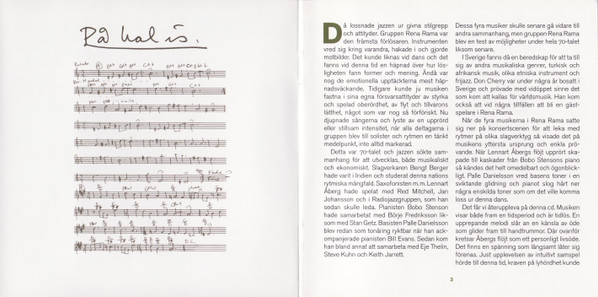 På hal is.
Då lossnade jazzen ur givna stilgrepp
och attityder. Gruppen Rena Rama var
den främsta förlösaren. Instrumenten
vred sig kring varandra, hakade i och gjorde
motbilder. Det kunde liknas vid dans och det
fanns vid denna tid en häpnad över hur lös-
ligheten fann former och mening. Ändå var
nog de emotionella upptäckterna mest häp-
nadsväckande. Tidigare kunde ju musiken
fastna i sina egna försvarsattityder av styrka
och spelad oberördhet, av flyt och tillvarons
lätthet, något som var nog så förföriskt. Nu
djupnade sångerna och lyste av en upprörd
eller stillsam intensitet, när alla deltagarna i
gruppen blev till solister och rytmen en tänkt
medelpunkt, inte alltid markerad.
Detta var 70-talet och jazzen sökte sam-
manhang för att utvecklas, både musikaliskt
och ekonomiskt. Slagverkaren Bengt Berger
hade varit i Indien och studerat denna nations
rytmiska mångfald. Saxofonisten m.m. Lennart
Åberg hade spelat med Red Mitchell, Jan
Johansson och i Radiojazzgruppen, som han
sedan skulle leda. Pianisten Bobo Stenson
hade samarbetat med Börje Fredriksson lik-
som med Stan Getz. Basisten Palle Danielsson
blev redan som tonåring ryktbar när han ack-
ompanjerade pianisten Bill Evans. Sedan kom
han bland annat att samarbeta med Eje Thelin,
Steve Kuhn och Keith Jarrett.
Dessa fyra musiker skulle senare gå vidare till
andra sammanhang, men gruppen Rena Rama
blev en test av möjligheter under hela 70-talet
liksom senare.
I Sverige fanns då en beredskap för att ta till
sig av andra musikaliska genrer, turkisk och
afrikansk musik, olika etniska instrument och
frijazz. Don Cherry var under några år bosatt i
Sverige och prövade med vidöppet sinne det
som kom att kallas för världsmusik. Han kom
också att vid några tillfällen att bli en gäst-
spelare i Rena Rama.
När de fyra musikerna i Rena Rama satte
sig ner på konsertscenen för att leka med
rytmer på olika slagverktyg så visade det på
musikens yttersta ursprung och enkla pröv-
ande. När Lennart Åbergs flöjt upprört ska-
pade till kaskader från Bobo Stensons piano
så kändes det helt omedelbart och ögonblick-
ligt. Palle Danielsson vred basens toner i en
sviktande glidning och pianot slog hårt ner
några enskilda toner som om det ville komma
loss ur denna dans.
Det får vi återuppleva på denna cd. Musiken
visar både fram en tidsperiod och är tidlös. En
upprepande metodi slår an en känsla av öde
som glider fram till handtrummor. Där ovanför
kretsar Åbergs flöjt som ett personligt livsöde.
Det finns en spänning som långsamt låter sig
förenas. Just upplevelsen av intuitivt samspel
hörde till denna tid, kraven på lyhördhet kunde
3